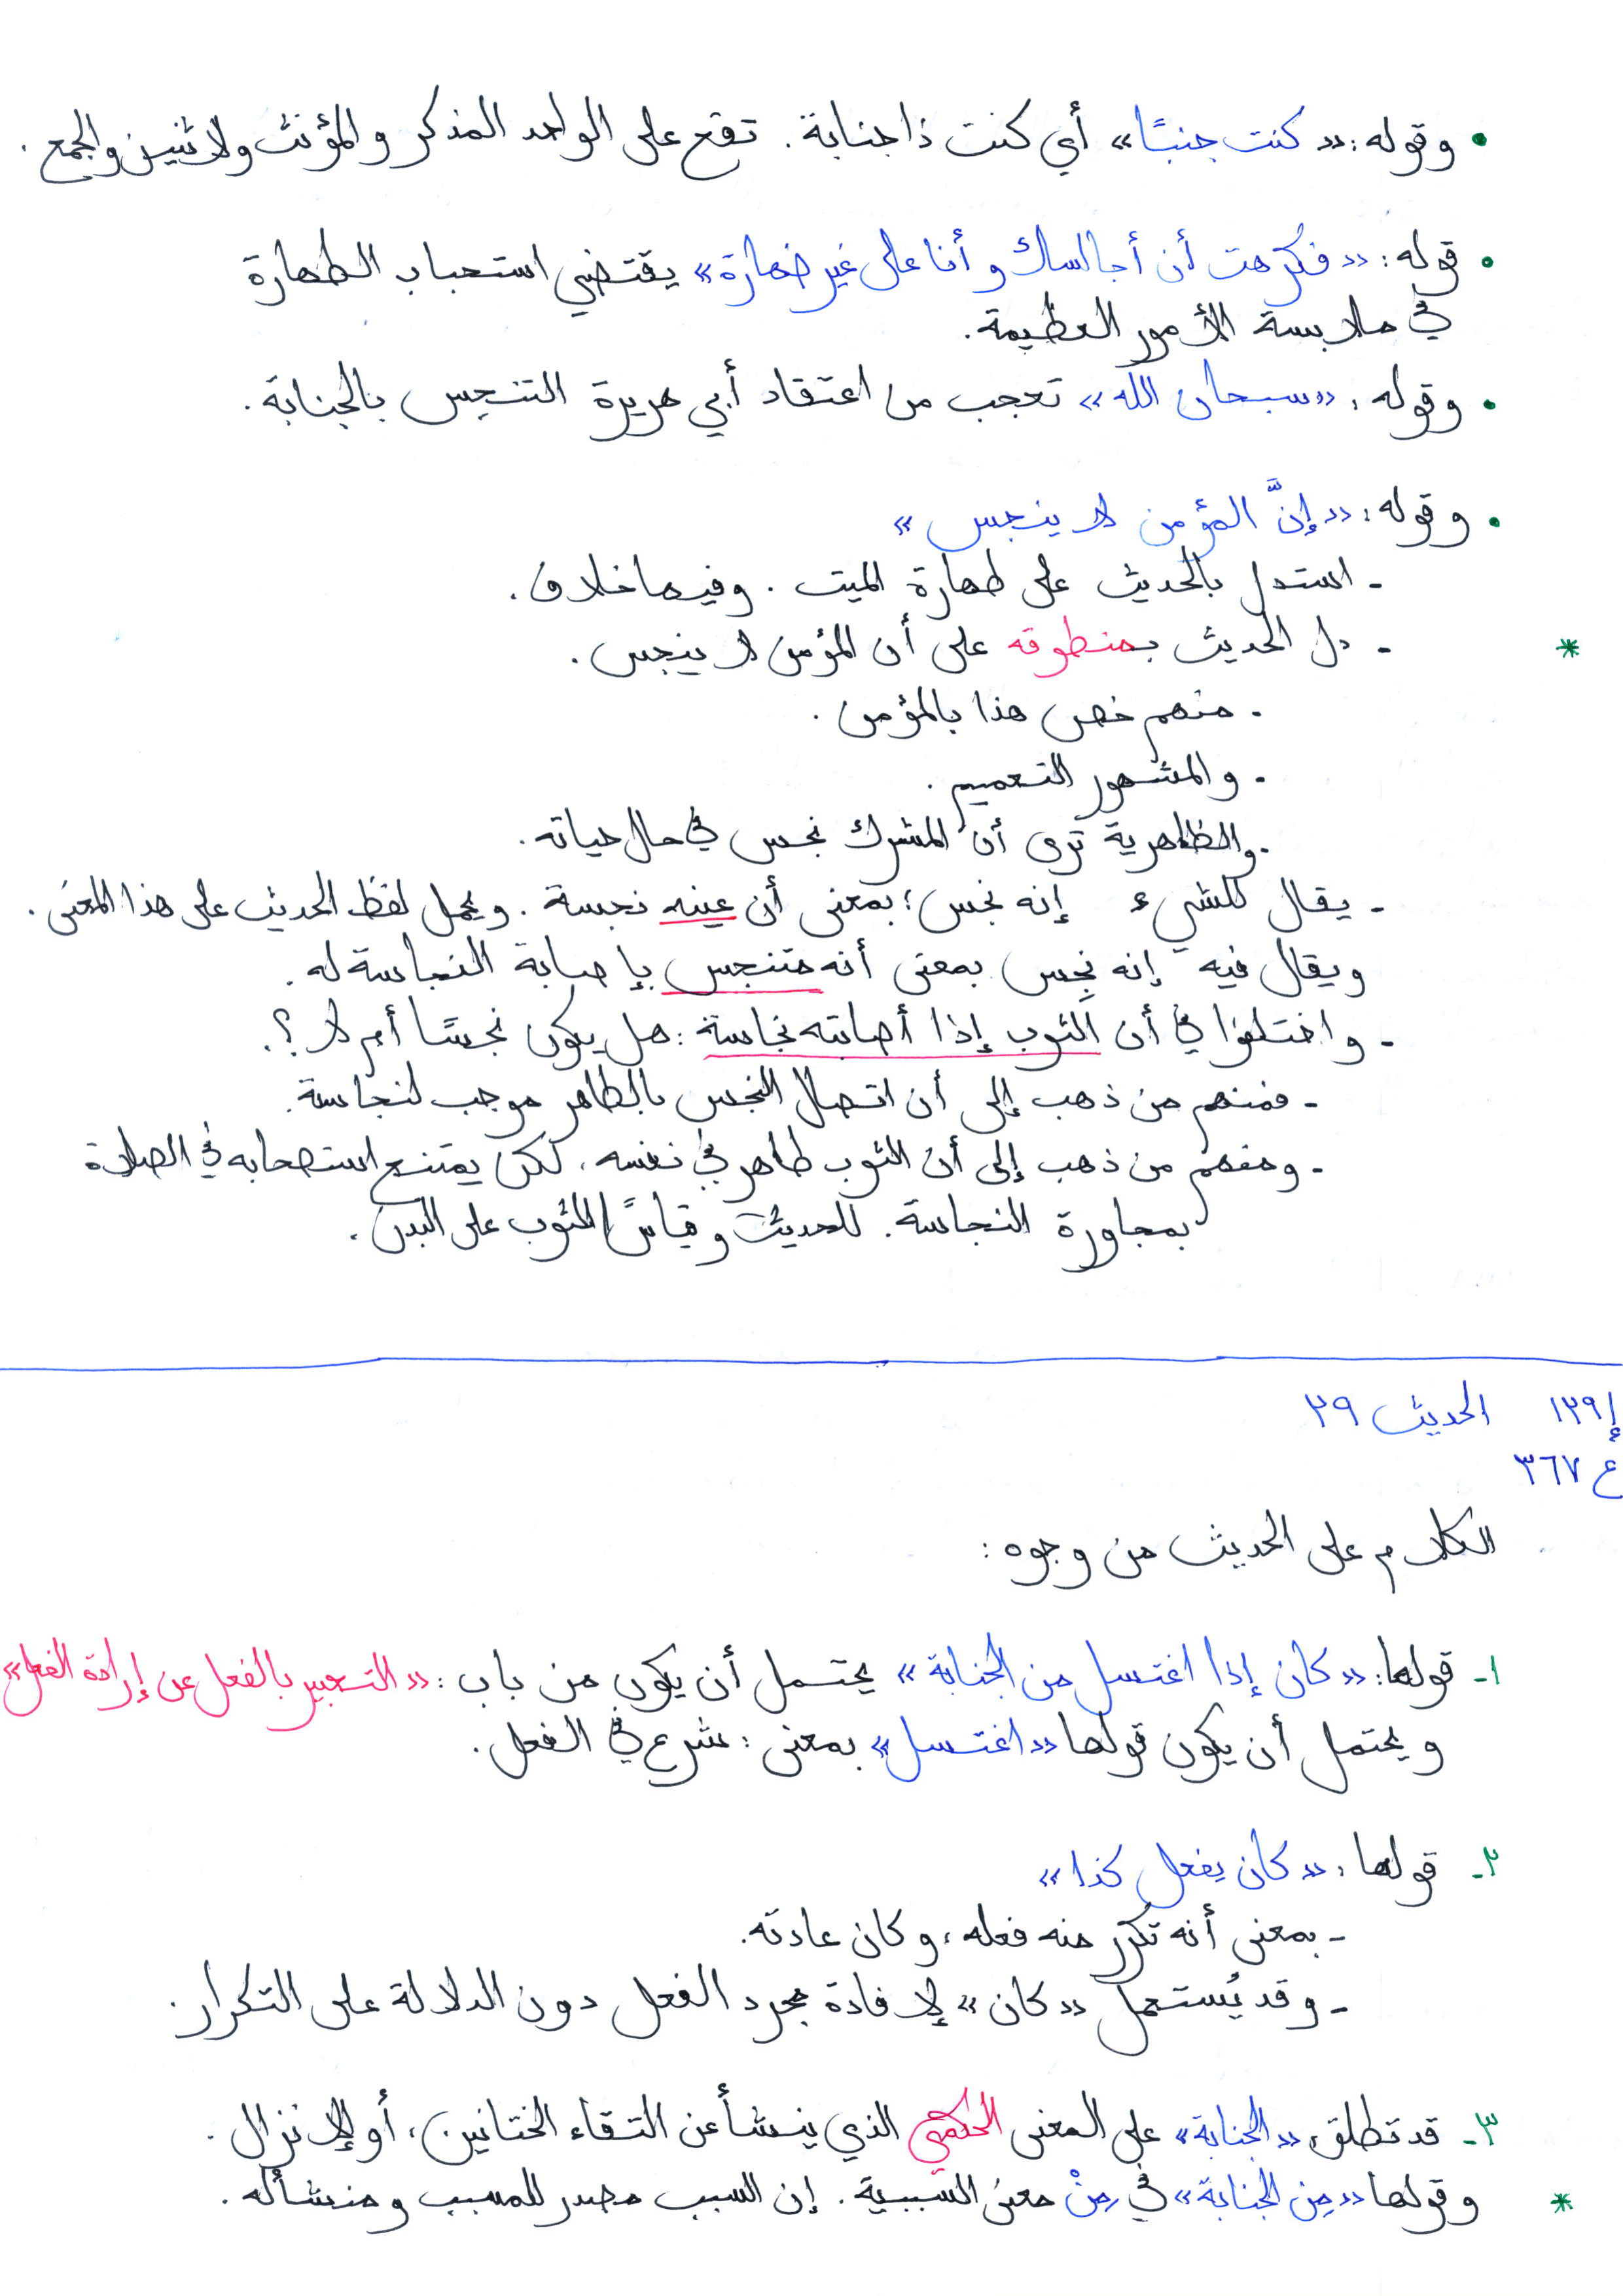 • وقوله: «كنت جنبًا» أي كنت ذا جنابة. تقع على الواحد المذكر والمؤنث ولاثنين والجمع.
• قوله: «فكرهت أن أجالسك وأنا على غير طهارة» يقتضي استحباب الطهارة
في ملابسة الأمور العظيمة.
• وقوله: «سبحان الله» تعجب من اعتقاد أبي هريرة التنجس بالجنابة.
• وقوله: «إنَّ المؤمن لا ينجس»
- استدل بالحديث على طهارة الميت. وفيها خلاف.
* - دل الحديث بمنطوقه على أن المؤمن لا ينجس.
• منهم خص هذا بالمؤمن.
• والمشهور التعميم.
• والظاهرية ترى أن المشرك نجس في حال حياته.
- يقال للشيء إنه نجس؛ بمعنى أن عينه نجسة. ويحمل لفظ الحديث على هذا المعنى.
ويقال فيه إنه نجِس بمعنى أنه متنجس بإصابة النجاسة له.
- واختلفوا في أن الثوب إذا أصابته نجاسة: هل يكون نجسًا أم لا؟.
- فمنهم من ذهب إلى أن اتصال النجس بالطاهر موجب لنجاسة.
- ومنهم من ذهب إلى أن الثوب طاهر في نفسه، لكن يمتنع استصحابه في الصلاة
بمجاورة النجاسة. للحديث وقياسًا للثوب على البدن.
إ ١٣٩ الحديث ٢٩
ع ٣٦٧
الكلام على الحديث من وجوه:
١- قولها: «كان إذا اغتسل من الجنابة» يحتمل أن يكون من باب: «التعبير بالفعل عن إرادة الفعل»
ويحتمل أن يكون قولها «اغتسل» بمعنى: شرع في الفعل.
٢- قولها: «كان يفعل كذا»
- بمعنى أنه تكرّر منه فعله، وكان عادته.
- وقد يُستعمل «كان» لإفادة مجرد الفعل دون الدلالة على التكرار.
٣- قد تطلق «الجنابة» على المعنى الحكمي الذي ينشأ عن التقاء الختانين، أو الإنزال.
* وقولها «من الجنابة» في مِنْ معنى السببية. إن السبب مصدر للمسبب ومنشأ له.